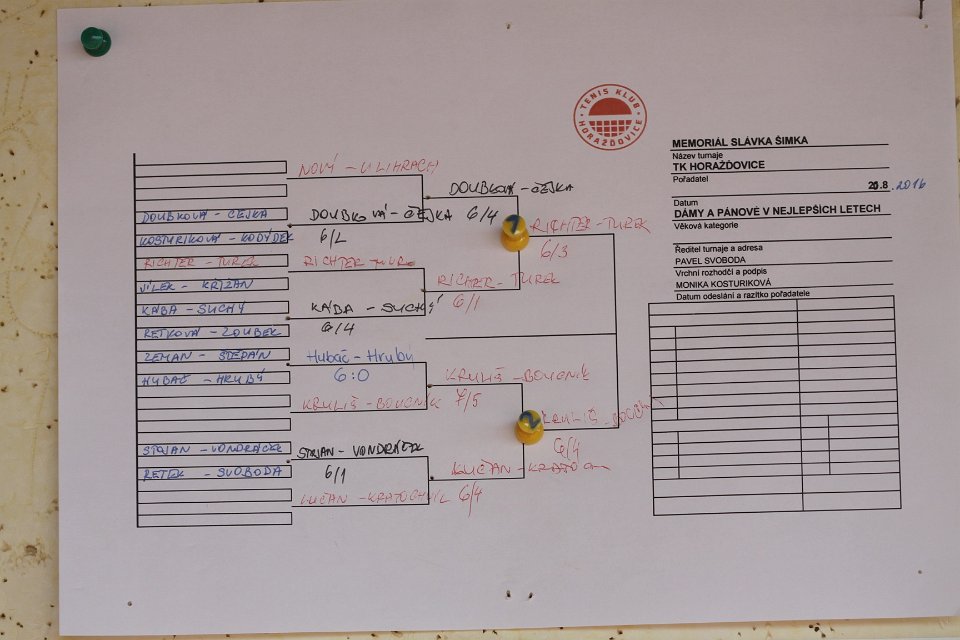 TENIS KLUB HORAŽĎOVICE
MEMORIÁL SLÁVKA ŠIMKA
Název turnaje
TK HORAŽĎOVICE
Pořadatel
20.8.2016
Datum
DÁMY A PÁNOVÉ V NEJLEPŠÍCH LETECH
Věková kategorie
Ředitel turnaje a adresa
PAVEL SVOBODA
Vrchní rozhodčí a podpis
MONIKA KOSTURIKOVÁ
Datum odeslání a razítko pořadatele
DOUBKOVÁ - ČEJKA
KOSTURIKOVÁ - KODÝDEK
RICHTER - TUREK
JÍLEK - KŘÍŽAN
KÁBA - SUCHÝ
RETKOVÁ - ZOUBEK
ZEMAN - ŠTĚPÁN
HUBAČ - HRUBÝ
STOJAN - VONDRÁČEK
RETEK - SVOBODA
NOVÝ - ULIHRACH
DOUBKOVÁ - ČEJKA
RICHTER - TUREK
KÁBA - SUCHÝ
6/4
Hubač - Hrubý
6:0
KRULIŠ - BOUČNÍK
STOJAN - VONDRÁČEK
6/1
LUČAN - KRATOCHVIL
DOUBKOVÁ - ČEJKA
6/4
RICHTER - TUREK
6/1
KRULIŠ - BOUČNÍK
7/5
LUČAN -
6/4
1
RICHTER - TUREK
6/3
2
KRULIŠ -
6/4